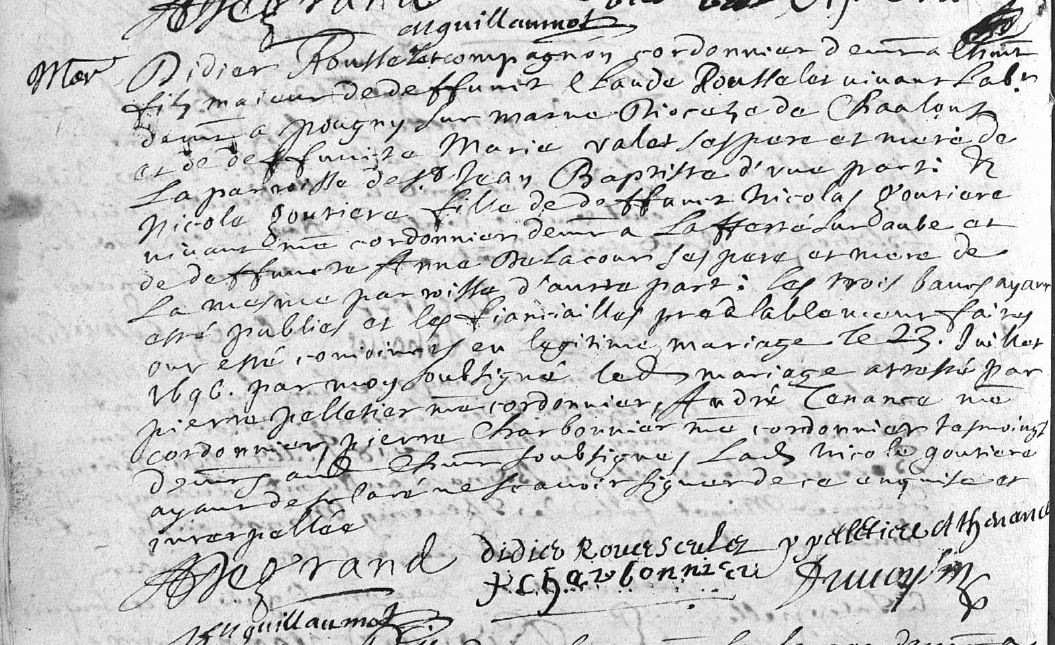 AJlegrand
Mguillaumot
Mar Didier Rousselet compagnon cordonnier demrt a Chaumt
filz majeur de deffunct Claude Rousselet vivant Labr
demrt a pougny sur marne Dioceze de Chaalons
et de deffuncte Marie valet ses pere et mere de
La parroisse de St Jean Baptiste d'vne part: Et
Nicole goutiere fille de deffunct Nicolas goutiere
vivant me cordonnier demrt a La fferté sur aube et
de deffuncte Anne Delacour ses pere et mere de
La mesme parroisse d'autre part: les trois bancs ayant
esté publies et les fiançailles prealablement faites
ont esté conjoincts en legitime mariage le 23. Juillet
1696. par moy soubsigné led mariage attesté par
pierre pelletier me cordonnier, André Tenance me
cordonnier, pierre Charbonnier me cordonnier tesmoings
demrts aud Chaumt soubsignes, Lad Nicole goutiere
ayant declaré ne scavoir signer de ce enquise et
interpellée
AJlegrand didier Rouesselez p peletier A thenance
p Charbonnier
Mguillaumot